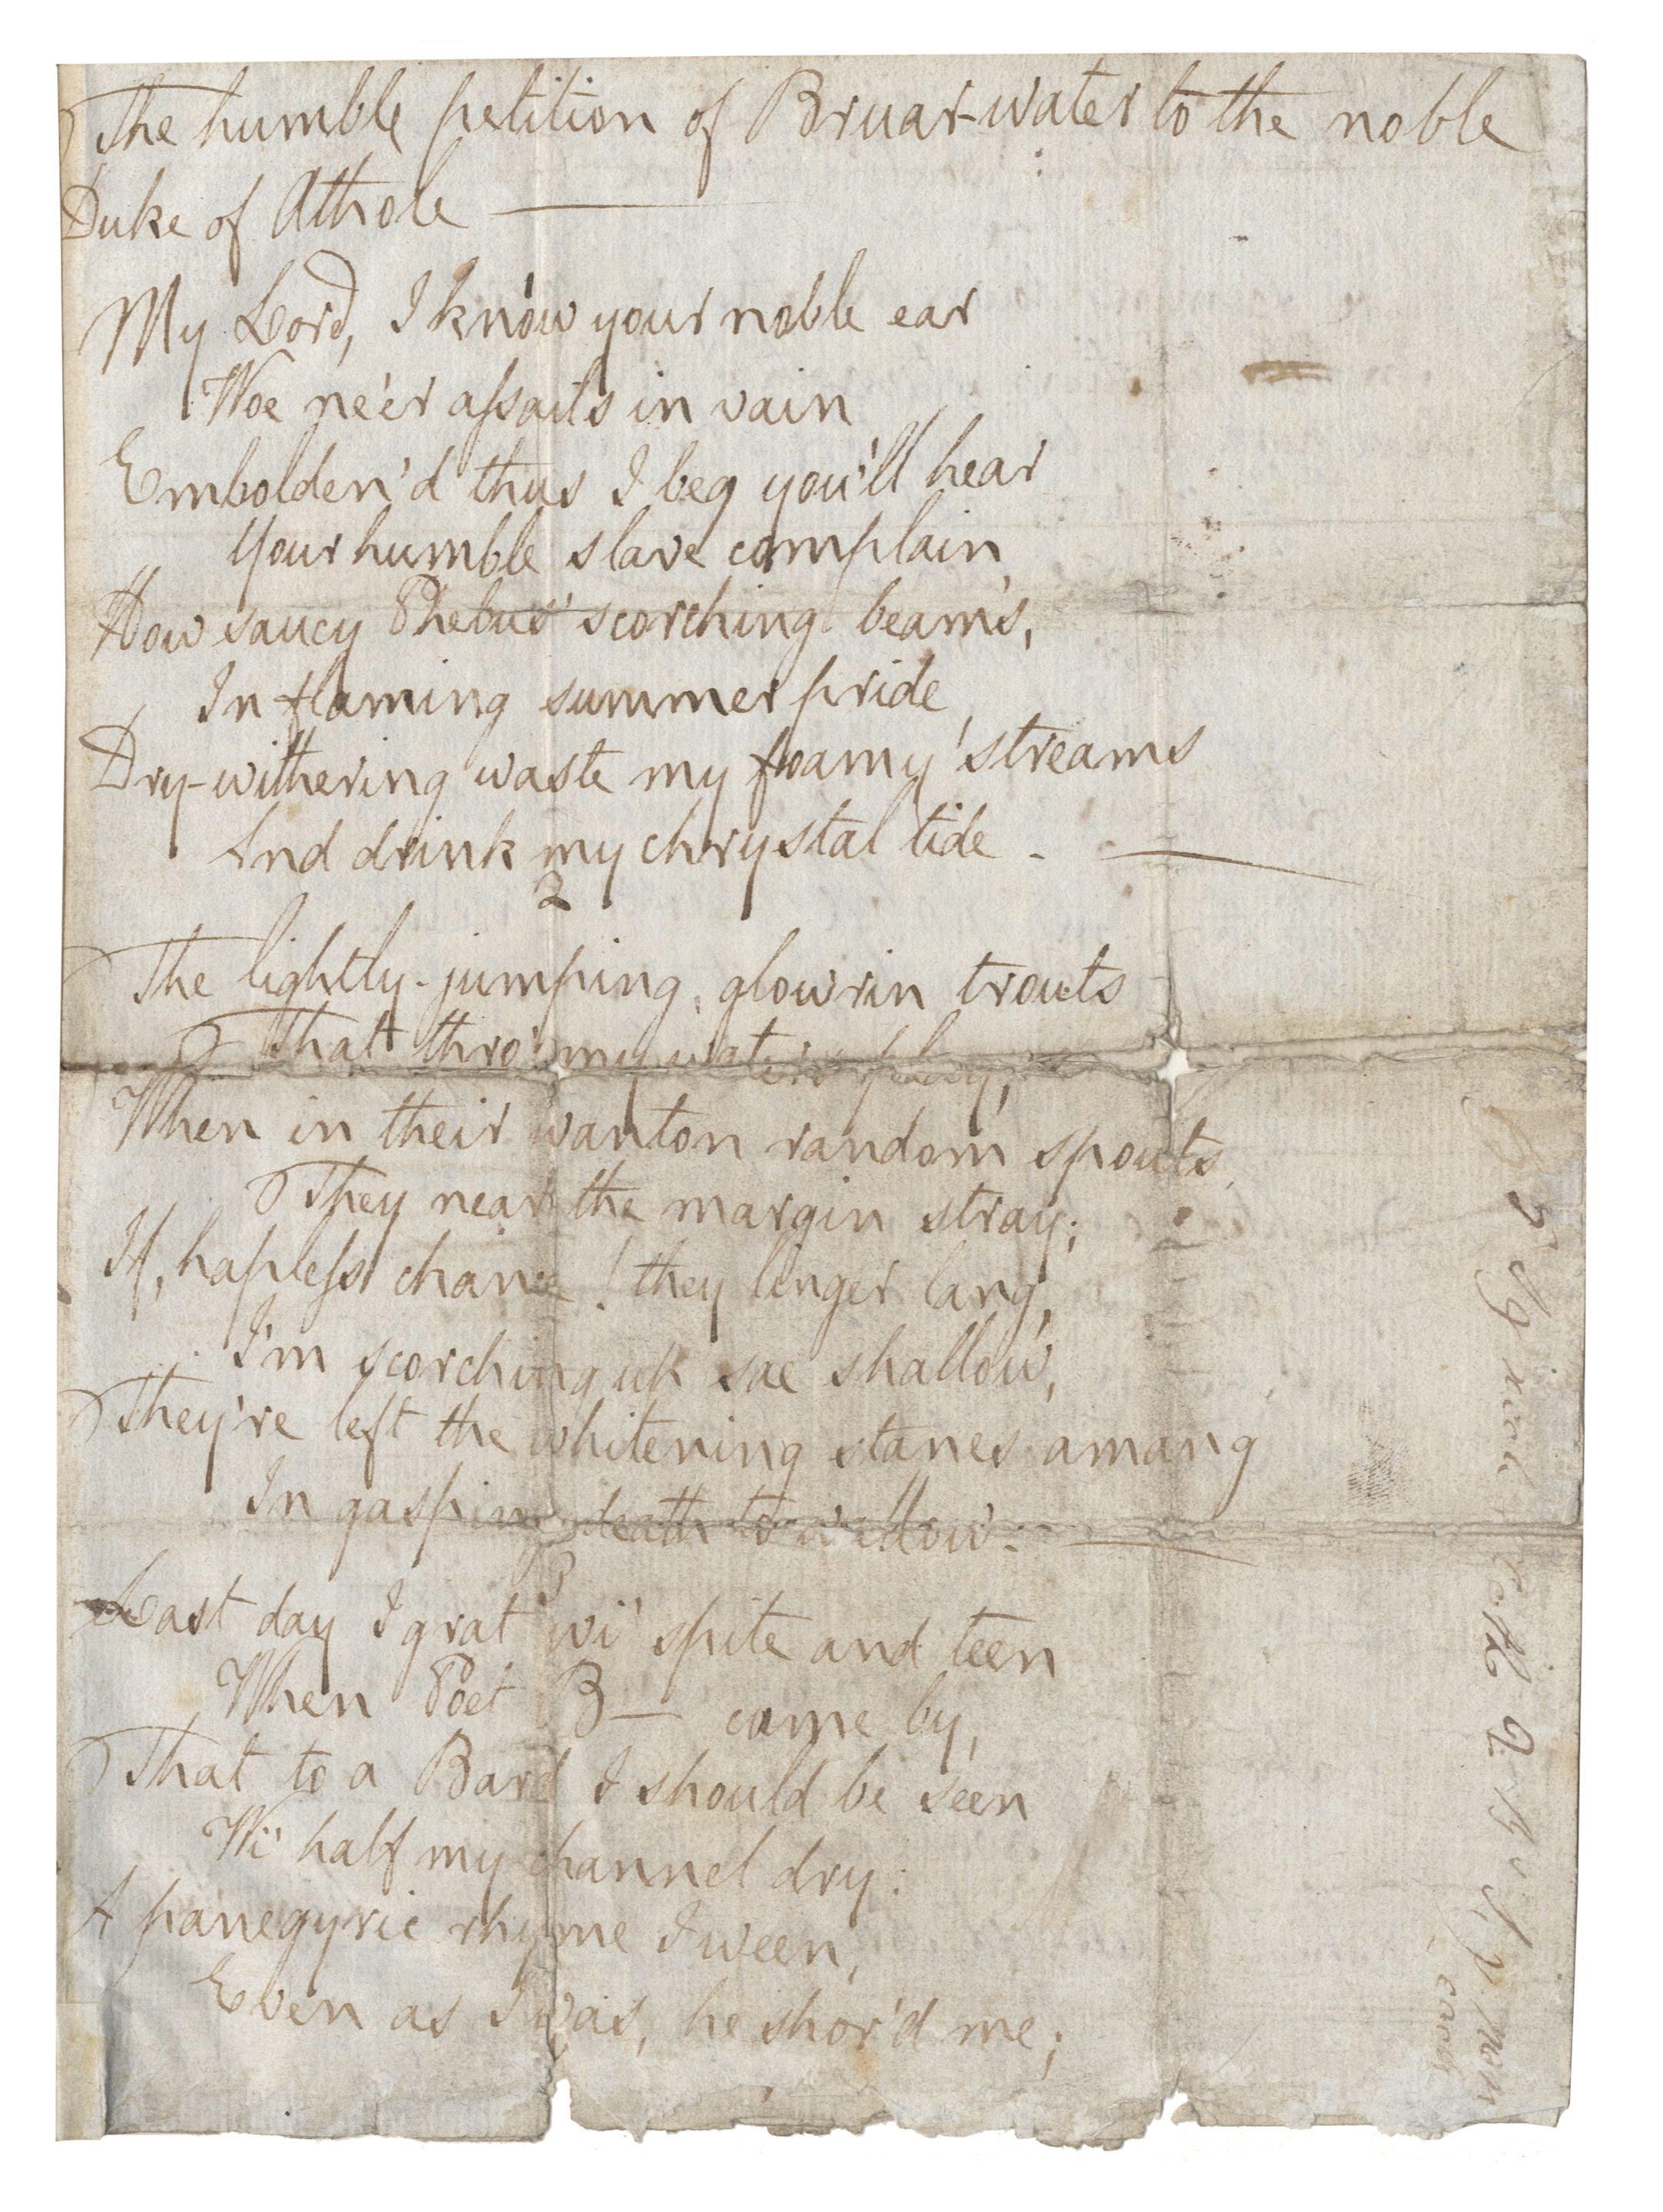 The humble petition of Bruar-water to the noble
Duke of Athole
My Lord, I know your noble ear
Woe ne'er assails in vain
Embolden'd thus I beg you'll hear
Your humble slave complain
How saucy Phebus' scorching beams,
In flaming summer pride,
Dry-withering waste my foamy streams
And drink my chrystal tide.
2
The lightly-jumping glowrin trouts
That thro' my waters play,
When in their wanton random spouts,
They near the margin stray;
If, hapless chance! they linger lang,
I'm scorching up sae shallow,
They're left the whitening stanes amang
In gasping death to wallow.
3
Last day I grat wi' spite and teen
When Poet B— came by,
That to a Bard I should be seen
Wi' half my channel dry:
A panegyric rhyme I ween,
Even as I was, he shor'd me;